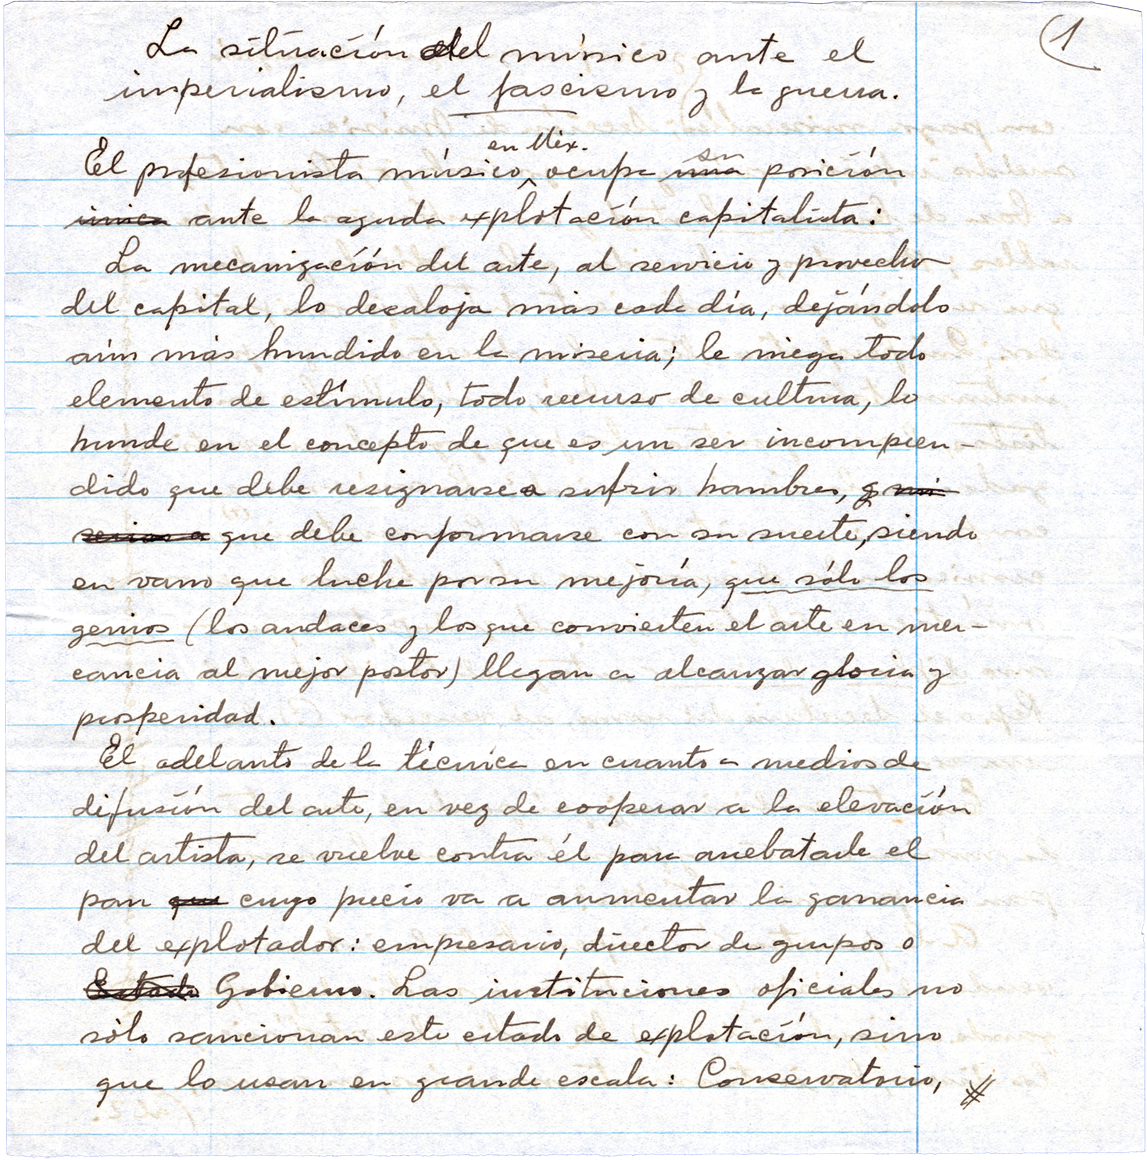 (1
La situación del músico ante el
imperialismo, el fascismo y la guerra.
en Méx.
El profesionista músico ocupa una su posición
única ante la aguda explotación capitalista:
La mecanización del arte, al servicio y provecho
del capital, lo desaloja más cada día, dejándolo
aún más hundido en la miseria; le niega todo
elemento de estímulo, todo recurso de cultura, lo
hunde en el concepto de que es un ser incompren-
dido que debe resignarse a sufrir hambres, y mi-
serias a que debe conformarse con su suerte, siendo
en vano que luche por su mejoría, que sólo los
genios (los audaces y los que convierten el arte en mer-
cancia al mejor postor) llegan a alcanzar gloria y
prosperidad.
El adelanto de la técnica en cuanto a medios de
difusión del arte, en vez de cooperar a la elevación
del artista, se vuelve contra él para arrebatarle el
pan que cuyo precio va a aumentar la ganancia
del explotador: empresario, director de grupos o
Estado Gobierno. Las instituciones oficiales no
sólo sancionan este estado de explotación, sino
que lo usan en grande escala: Conservatorio,